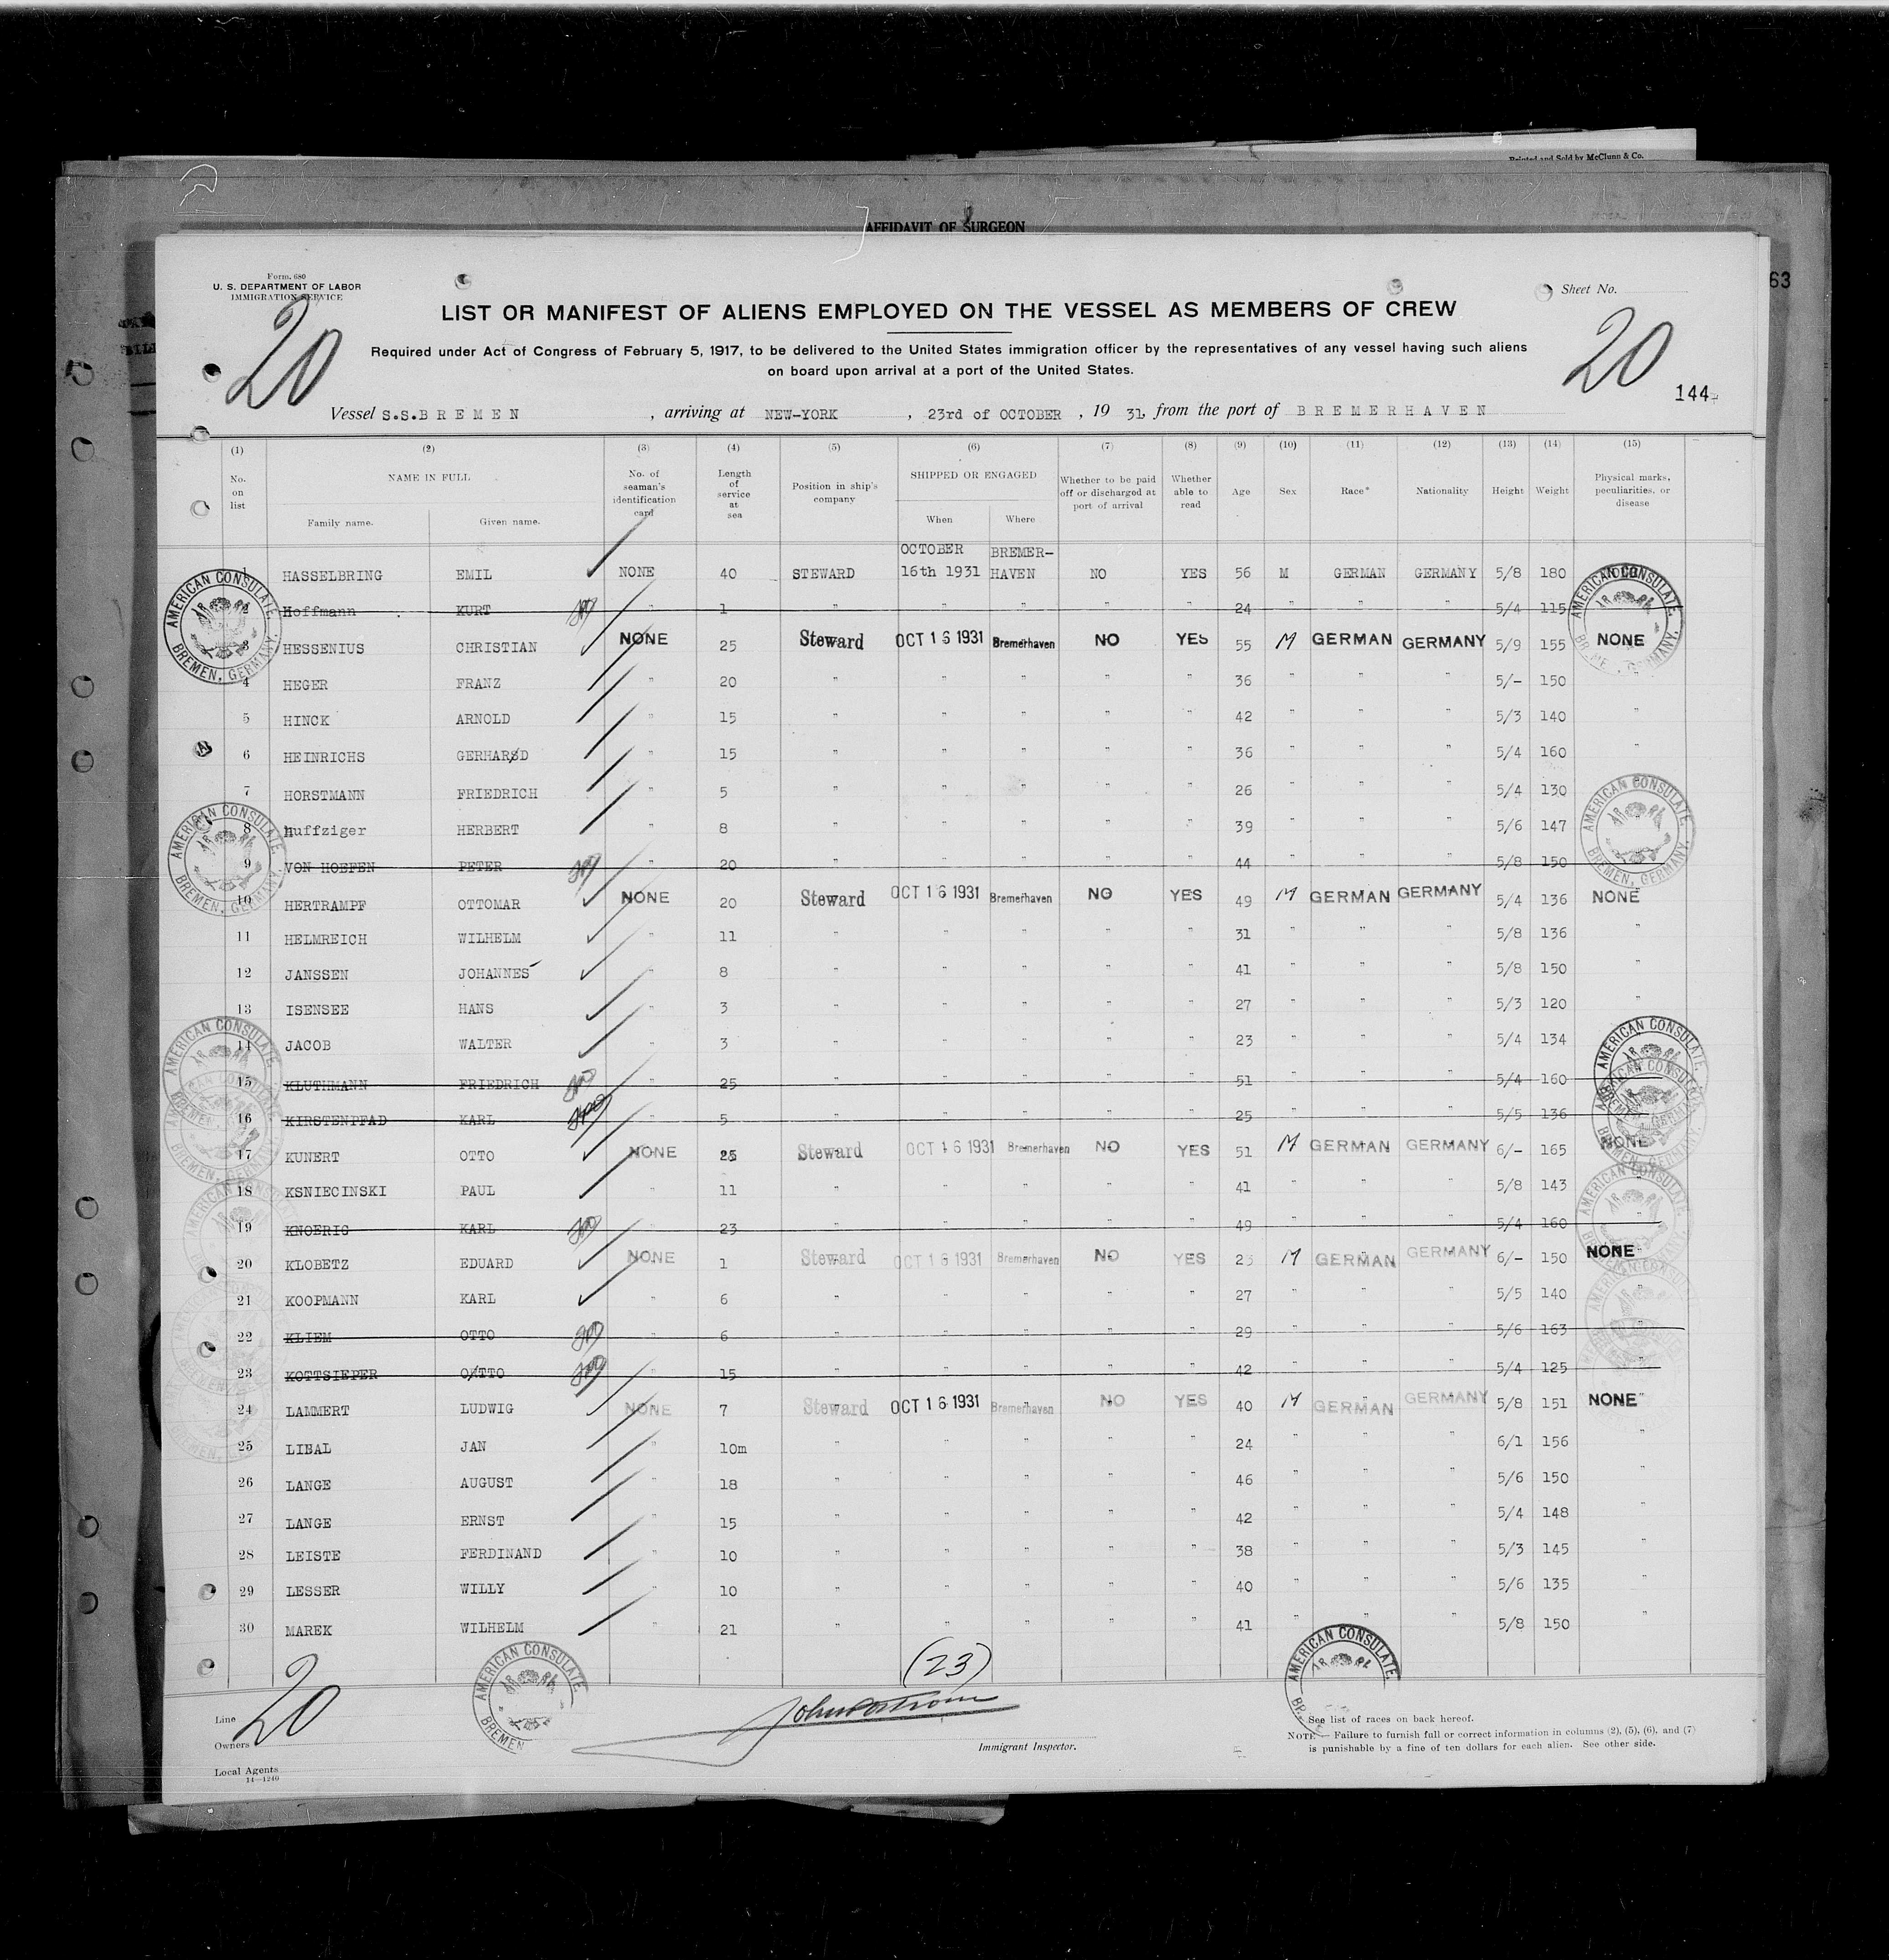 Printed and Sold by McClunn & Co.
AFFIDAVIT OF SURGEON
63
Form. 680
U. S. DEPARTMENT OF LABOR
IMMIGRATION SERVICE
Sheet No.
20
20
LIST OR MANIFEST OF ALIENS EMPLOYED ON THE VESSEL AS MEMBERS OF CREW
Required under Act of Congress of February 5, 1917, to be delivered to the United States immigration officer by the representatives of any vessel having such aliens
on board upon arrival at a port of the United States.
144
Vessel S.S.BREMEN , arriving at NEW-YORK , 23rd of OCTOBER , 19 31, from the port of BREMERHAVEN
(1) (2) (3) (4) (5) (6) (7) (8) (9) (10) (11) (12) (13) (14) (15)
No. on list NAME IN FULL Family name. Given name. No. of seaman's identification card Length of service at sea Position in ship's company SHIPPED OR ENGAGED When Where Whether to be paid off or discharged at port of arrival Whether able to read Age Sex Race* Nationality Height Weight Physical marks, peculiarities, or disease
OCTOBER BREMER-
1 HASSELBRING EMIL NONE 40 STEWARD 16th 1931 HAVEN NO YES 56 M GERMAN GERMANY 5/8 180
2 Hoffmann KURT " 1 " " " " " 24 " " " 5/4 115
3 HESSENIUS CHRISTIAN NONE 25 Steward OCT 16 1931 Bremerhaven NO YES 55 M GERMAN GERMANY 5/9 155 NONE
4 HEGER FRANZ " 20 " " " " " 36 " " " 5/- 150
5 HINCK ARNOLD " 15 " " " " " 42 " " " 5/3 140 "
6 HEINRICHS GERHARD " 15 " " " " " 36 " " " 5/4 160 "
7 HORSTMANN FRIEDRICH " 5 " " " " " 26 " " " 5/4 130
8 Huffziger HERBERT " 8 " " " " " 39 " " " 5/6 147
9 VON HOEFEN PETER " 20 " " " " " 44 " " " 5/8 150
10 HERTRAMPF OTTOMAR NONE 20 Steward OCT 16 1931 Bremerhaven NO YES 49 M GERMAN GERMANY 5/4 136 NONE
11 HELMREICH WILHELM " 11 " " " " " 31 " " " 5/8 136 "
12 JANSSEN JOHANNES " 8 " " " " " 41 " " " 5/8 150 "
13 ISENSEE HANS " 3 " " " " " 27 " " " 5/3 120 "
14 JACOB WALTER " 3 " " " " " 23 " " " 5/4 134
15 KLUTHMANN FRIEDRICH " 25 " " " " " 51 " " " 5/4 160
16 KIRSTENPFAD KARL " 5 " " " " " 25 " " " 5/5 136
17 KUNERT OTTO NONE 25 Steward OCT 16 1931 Bremerhaven NO YES 51 M GERMAN GERMANY 6/- 165 NONE
18 KSNIECINSKI PAUL " 11 " " " " " 41 " " " 5/8 143 "
19 KNOERIG KARL " 23 " " " " " 49 " " " 5/4 160 "
20 KLOBETZ EDUARD NONE 1 Steward OCT 16 1931 Bremerhaven NO YES 23 M GERMAN GERMANY 6/- 150 NONE
21 KOOPMANN KARL " 6 " " " " " 27 " " " 5/5 140 "
22 KLIEM OTTO " 6 " " " " " 29 " " " 5/6 163 "
23 KOTTSIEPER OTTO " 15 " " " " " 42 " " " 5/4 125 "
24 LAMMERT LUDWIG NONE 7 Steward OCT 16 1931 Bremerhaven NO YES 40 M GERMAN GERMANY 5/8 151 NONE
25 LIBAL JAN " 10m " " " " " 24 " " " 6/1 156 "
26 LANGE AUGUST " 18 " " " " " 46 " " " 5/6 150 "
27 LANGE ERNST " 15 " " " " " 42 " " " 5/4 148 "
28 LEISTE FERDINAND " 10 " " " " " 38 " " " 5/3 145 "
29 LESSER WILLY " 10 " " " " " 40 " " " 5/6 135 "
30 MAREK WILHELM " 21 " " " " " 41 " " " 5/8 150 "
AMERICAN CONSULATE
BREMEN, GERMANY.
(23)
20
Line
Owners
Local Agents
14-1240
Immigrant Inspector.
See list of races on back hereof.
NOTE.—Failure to furnish full or correct information in columns (2), (5), (6), and (7)
is punishable by a fine of ten dollars for each alien. See other side.